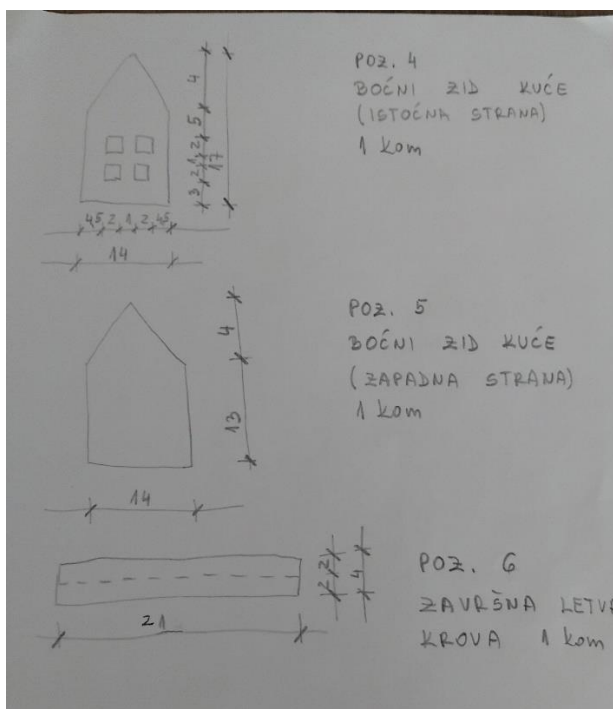 POZ. 4
BOČNI ZID KUĆE
(ISTOČNA STRANA)
1 kom
4
5
2
1
2
3
17
4,5 2 1 2 4,5
14
POZ. 5
BOČNI ZID KUĆE
(ZAPADNA STRANA)
1 kom
4
13
14
POZ. 6
ZAVRŠNA LETVA
KROVA 1 kom
2 2
4
21